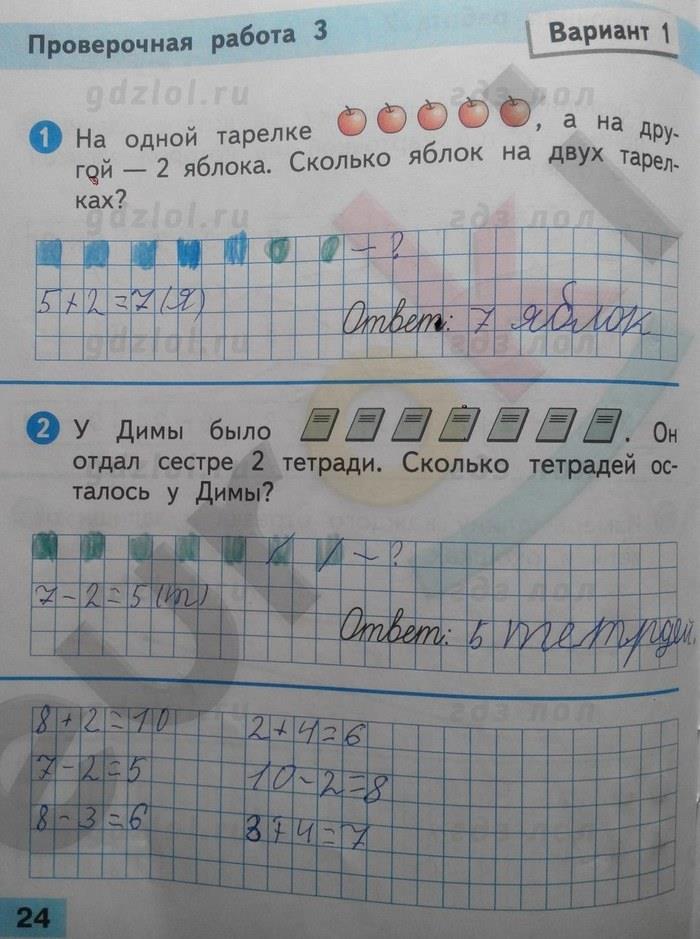 Проверочная работа 3
Вариант 1
gdzlol.ru
гдз лол
1 На одной тарелке , а на дру-
гой — 2 яблока. Сколько яблок на двух тарел-
ках?
gdzlol.ru
гдз лол
– ?
5 + 2 = 7 (Я)
Ответ: 7 яблок
gdzlol.ru
гдз лол
2 У Димы было . Он
отдал сестре 2 тетради. Сколько тетрадей ос-
талось у Димы?
– ?
7 – 2 = 5 (т)
Ответ: 5 тетрдей.
8 + 2 = 10 2 + 4 = 6
7 – 2 = 5 10 – 2 = 8
8 – 3 = 6 3 + 4 = 7
24